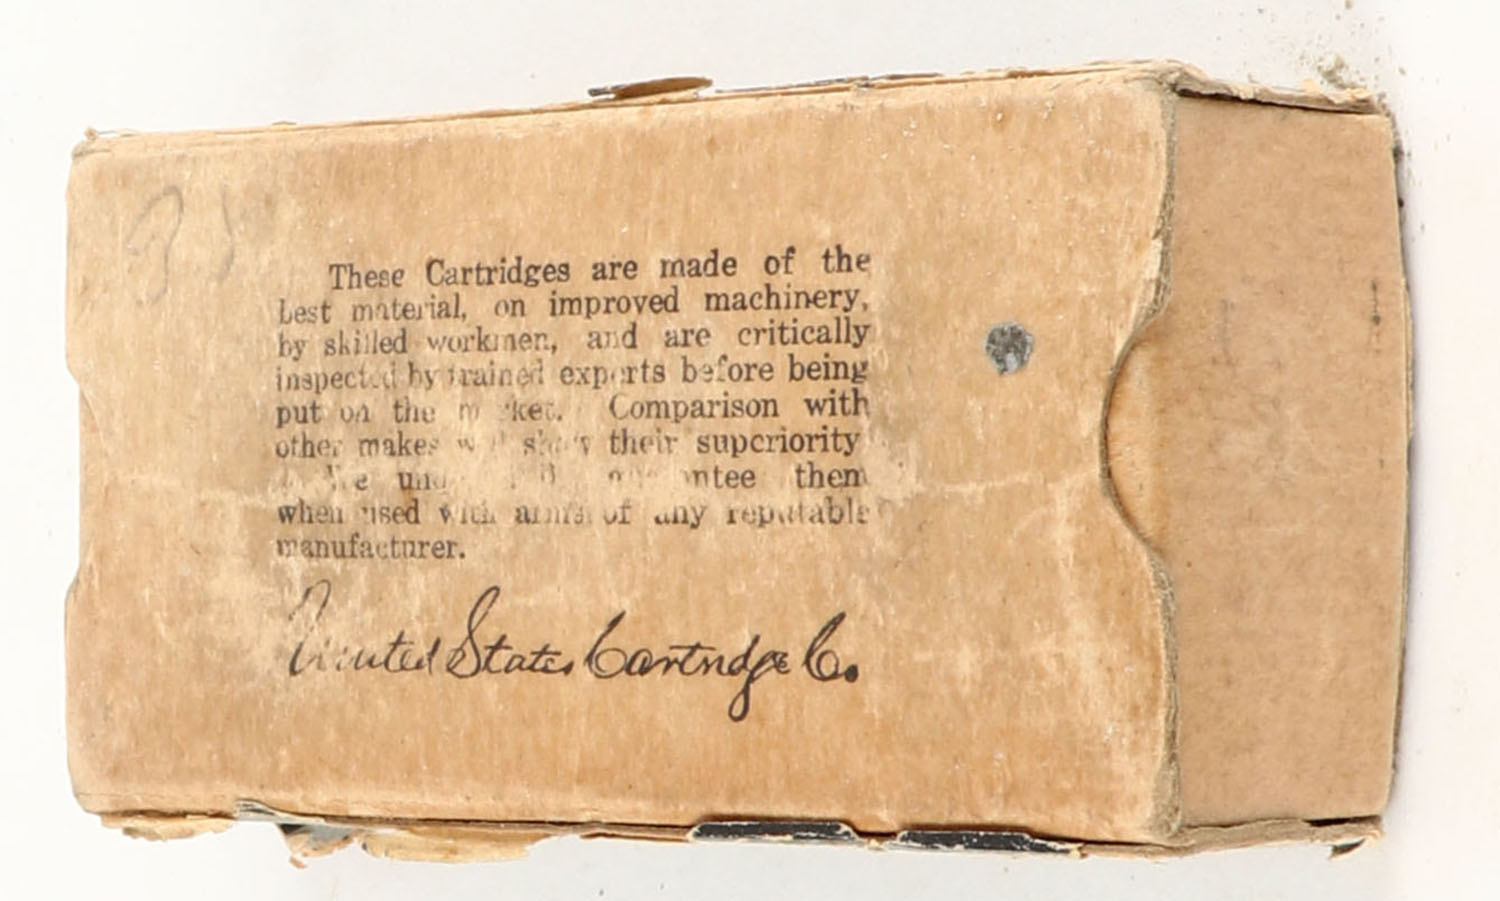 These Cartridges are made of the
best material, on improved machinery,
by skilled workmen, and are critically
inspected by trained experts before being
put on the market. Comparison with
other makes will show their superiority
We them
when used with arms of any reputable
manufacturer.
United States Cartridge Co.